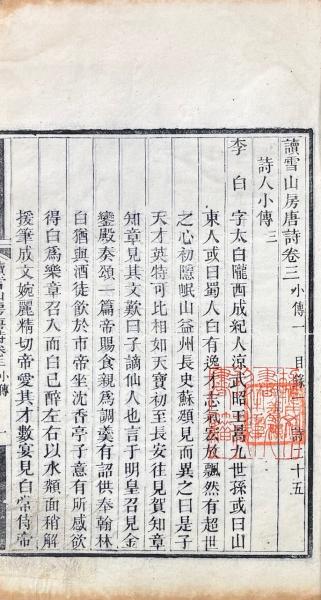 讀雪山房唐詩卷三 小傳一 目錄一 詩二十五
詩人小傳三
李白 字太白隴西成紀人涼武昭王暠九世孫或曰山
東人或曰蜀人白有逸才志氣宏放飄然有超世
之心初隱岷山益州長史蘇頲見而異之曰是子
天才英特可比相如天寶初至長安往見賀知章
知章見其文歎曰子謫仙人也言于明皇召見金
鑾殿奏頌一篇帝賜食親爲調羹有詔供奉翰林
白猶與酒徒飲於市帝坐沈香亭子意有所感欲
得白爲樂章召入而白已醉左右以水頮面稍解
援筆成文婉麗精切帝愛其才數宴見白常侍帝
讀雪山房唐詩卷三 小傳 一